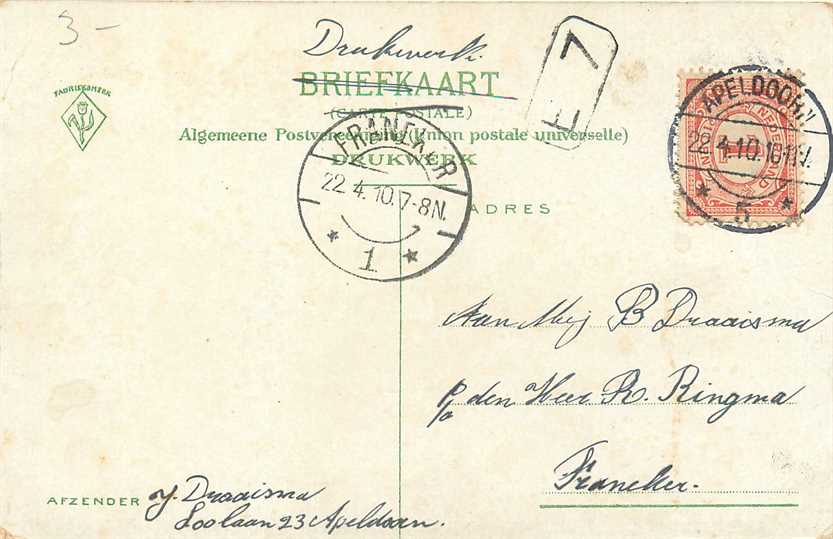 3-
Drukwerk.
FABRIEKSMERK
BRIEFKAART
(CARTE POSTALE)
Algemeene Postvereeniging (Union postale universelle)
DRUKWERK
E 7
APELDOORN
22.4.10.
5
FRANEKER
22.4.10.7-8N.
1
ADRES
Aan Mej B Draaisma
p/a den Heer R. Ringma
Franeker.
AFZENDER
J. Draaisma
Loolaan 23 Apeldoorn.